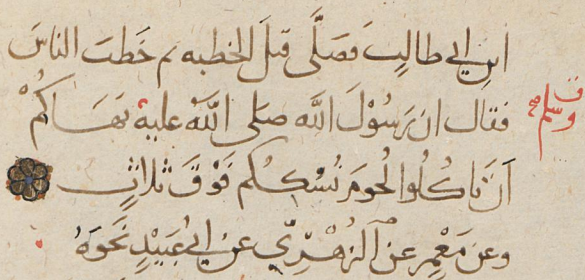 ابن ابي طالب فصلى قبل الخطبه ثم خطب الناس
فقال ان رسول الله صلى الله عليه نهاكم
ان تاكلوا لحوم نسككم فوق ثلاث
وعن معمر عن الزهري عن ابي عبيد نحوه
وسلم